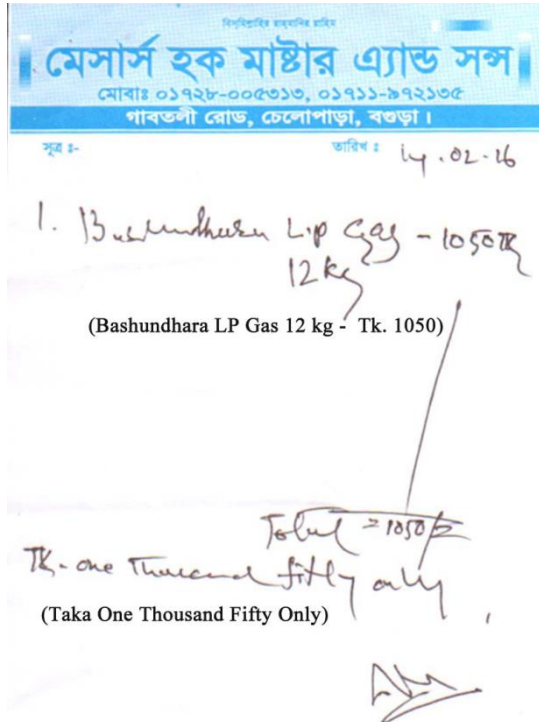 বিসমিল্লাহির রাহমানির রাহিম
মেসার্স হক মাষ্টার এ্যান্ড সন্স
মোবাঃ ০১৭২৮-০০৫৩১৩, ০১৭১১-৯৭২১৩৫
গাবতলী রোড, চেলোপাড়া, বগুড়া।
সূত্র ঃ- তারিখ ঃ 14.02.16
1. Bashundhara L.p Gas - 1050 TK
12 kg
(Bashundhara LP Gas 12 kg - Tk. 1050)
Total = 1050/=
TK- one Thousand fifty only
(Taka One Thousand Fifty Only)